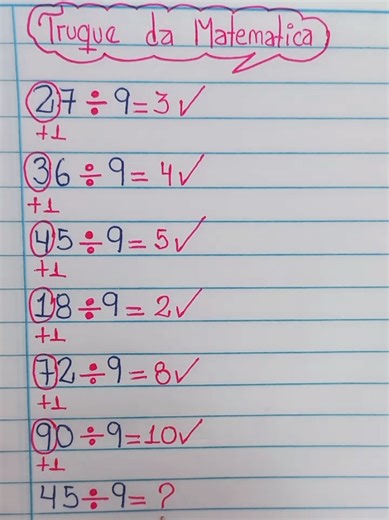 Truque da Matematica
27÷9=3✓
+1
36÷9=4✓
+1
45÷9=5✓
+1
18÷9=2✓
+1
72÷9=8✓
+1
90÷9=10✓
+1
45÷9=?